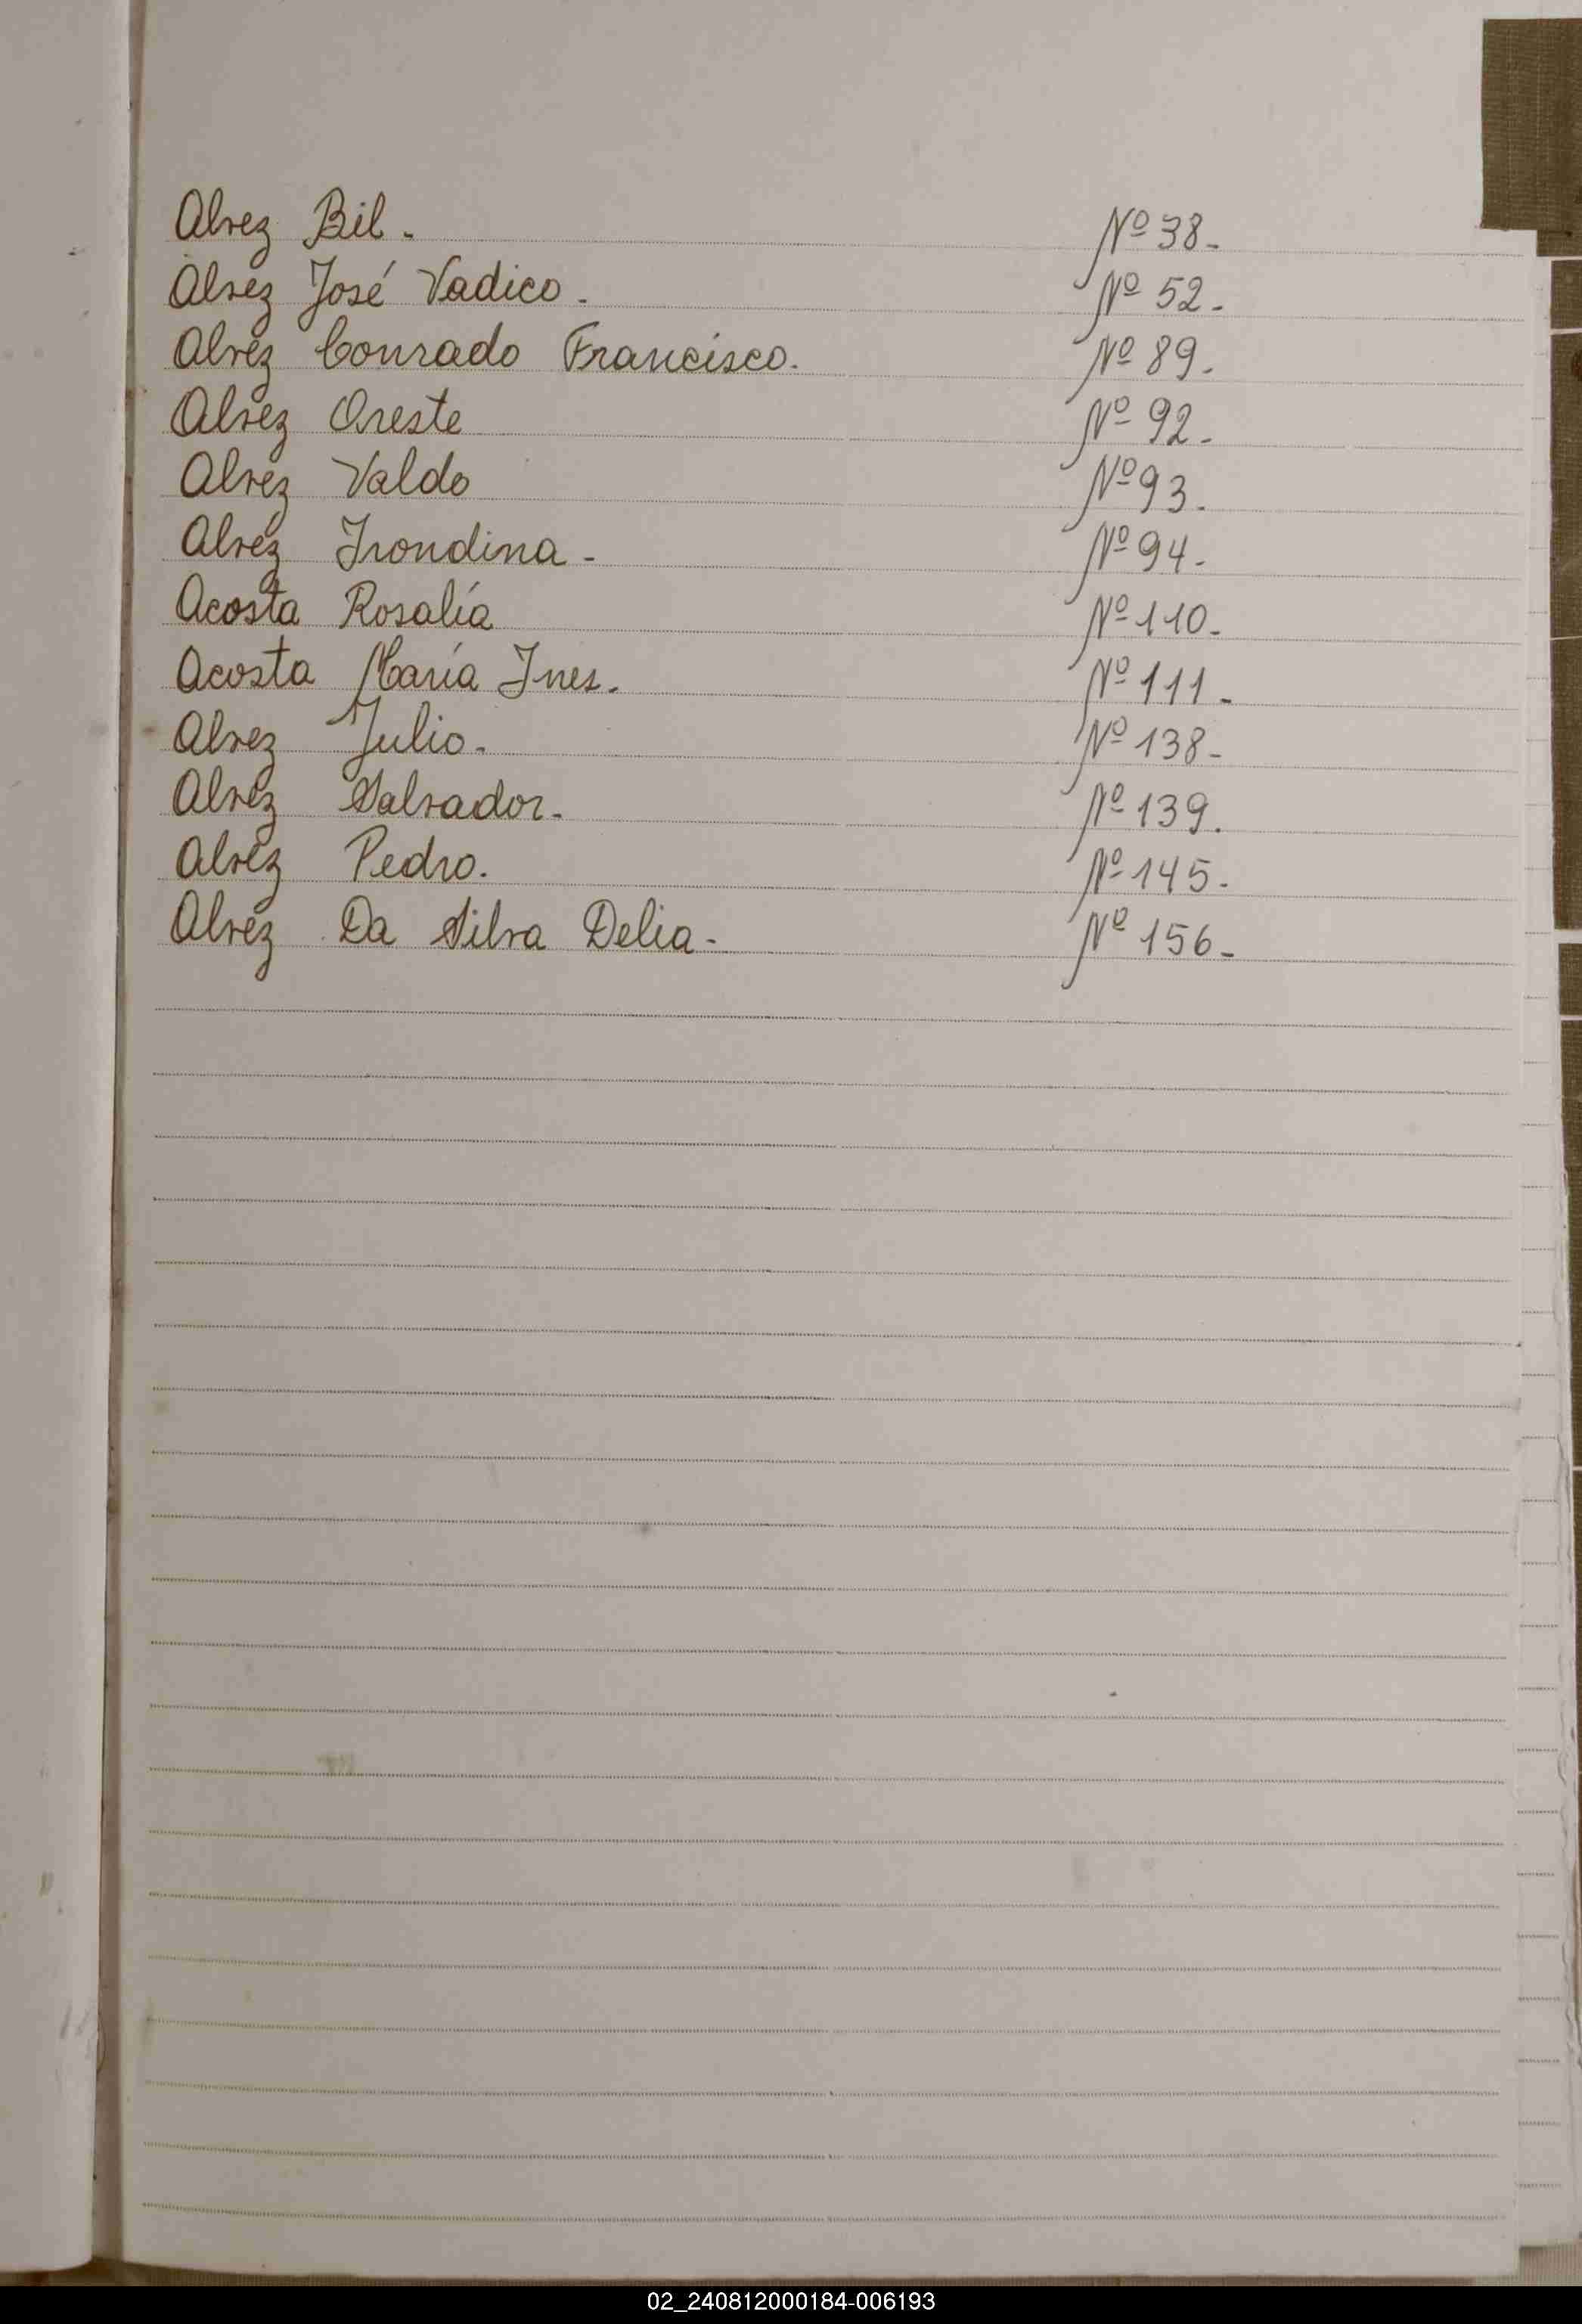 Alvez Bil. Nº 38.
Alvez José Vadico. Nº 52.
Alvez Conrado Francisco. Nº 89.
Alvez Oreste Nº 92.
Alvez Valdo Nº 93.
Alvez Irondina. Nº 94.
Acosta Rosalía Nº 110.
Acosta María Ines. Nº 111.
Alvez Julio. Nº 138.
Alvez Salvador. Nº 139.
Alvez Pedro. Nº 145.
Alvez Da Silva Delia. Nº 156.
02_240812000184-006193